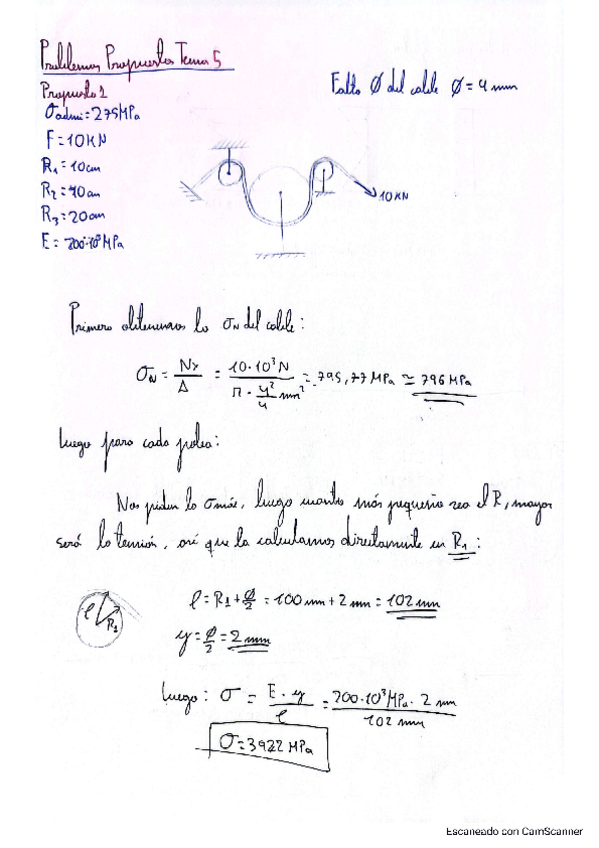 Problemas Propuestos Tema 5
Falta Ø del cable Ø = 4 mm
Propuesto 1
σadm = 275 MPa
F = 10 KN
R1 = 10 cm
R2 = 40 cm
R3 = 20 cm
E = 200·10³ MPa
10 KN
Primero obtenemos la σN del cable:
σN = Nx / A = 10·10³ N / π · 4²/4 mm² = 795,77 MPa ≃ 796 MPa
Luego para cada polea:
Nos piden la σmáx, luego cuanto más pequeño sea el R, mayor
será la tensión, así que la calculamos directamente en R1:
ρ R1
ρ = R1 + Ø/2 = 100 mm + 2 mm = 102 mm
y = Ø/2 = 2 mm
Luego: σ = E · y / ρ = 200·10³ MPa · 2 mm / 102 mm
σ = 3922 MPa
Escaneado con CamScanner